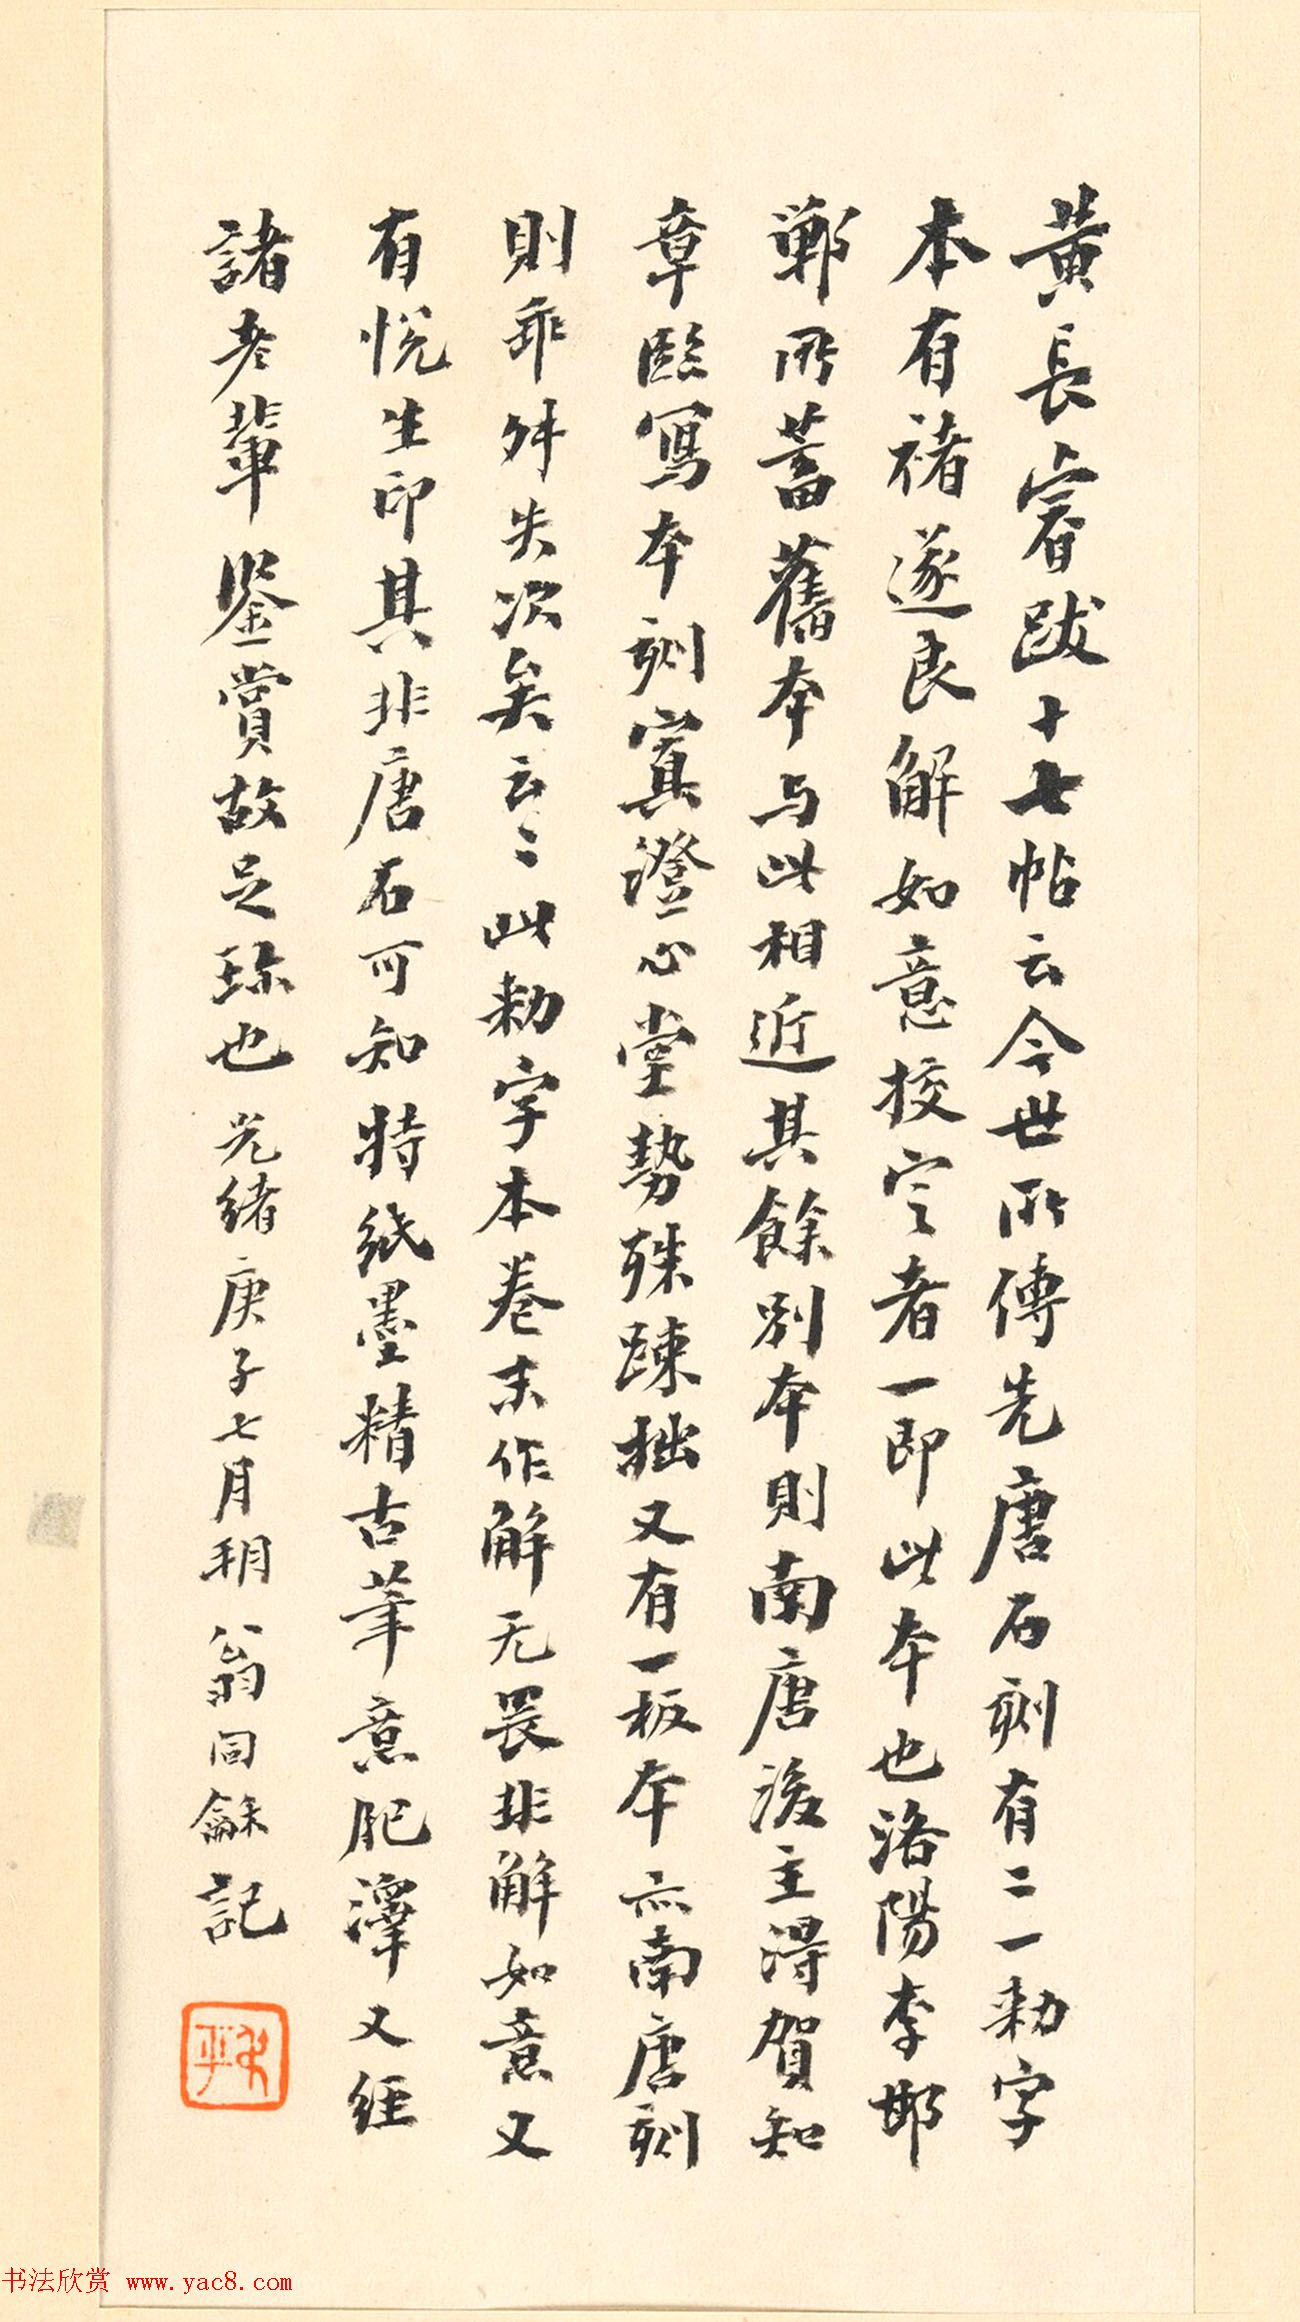 黃長睿跋十七帖云今世所傳先唐石刻有二一勅字
本有褚遂良解如意挍定者一即此本也洛陽李邯
鄲所蓄舊本与此相近其餘別本則南唐後主得賀知
章臨寫本刻寘澄心堂勢殊疎拙又有一板本亦南唐刻
則乖舛失次矣云〻此勅字本卷末作解无畏非解如意又
有悅生印其非唐石可知特紙墨精古筆意肥澤又經
諸老輩鑒賞故足珎也 光緒庚子七月朔 翁同龢記
书法欣赏 www.yac8.com